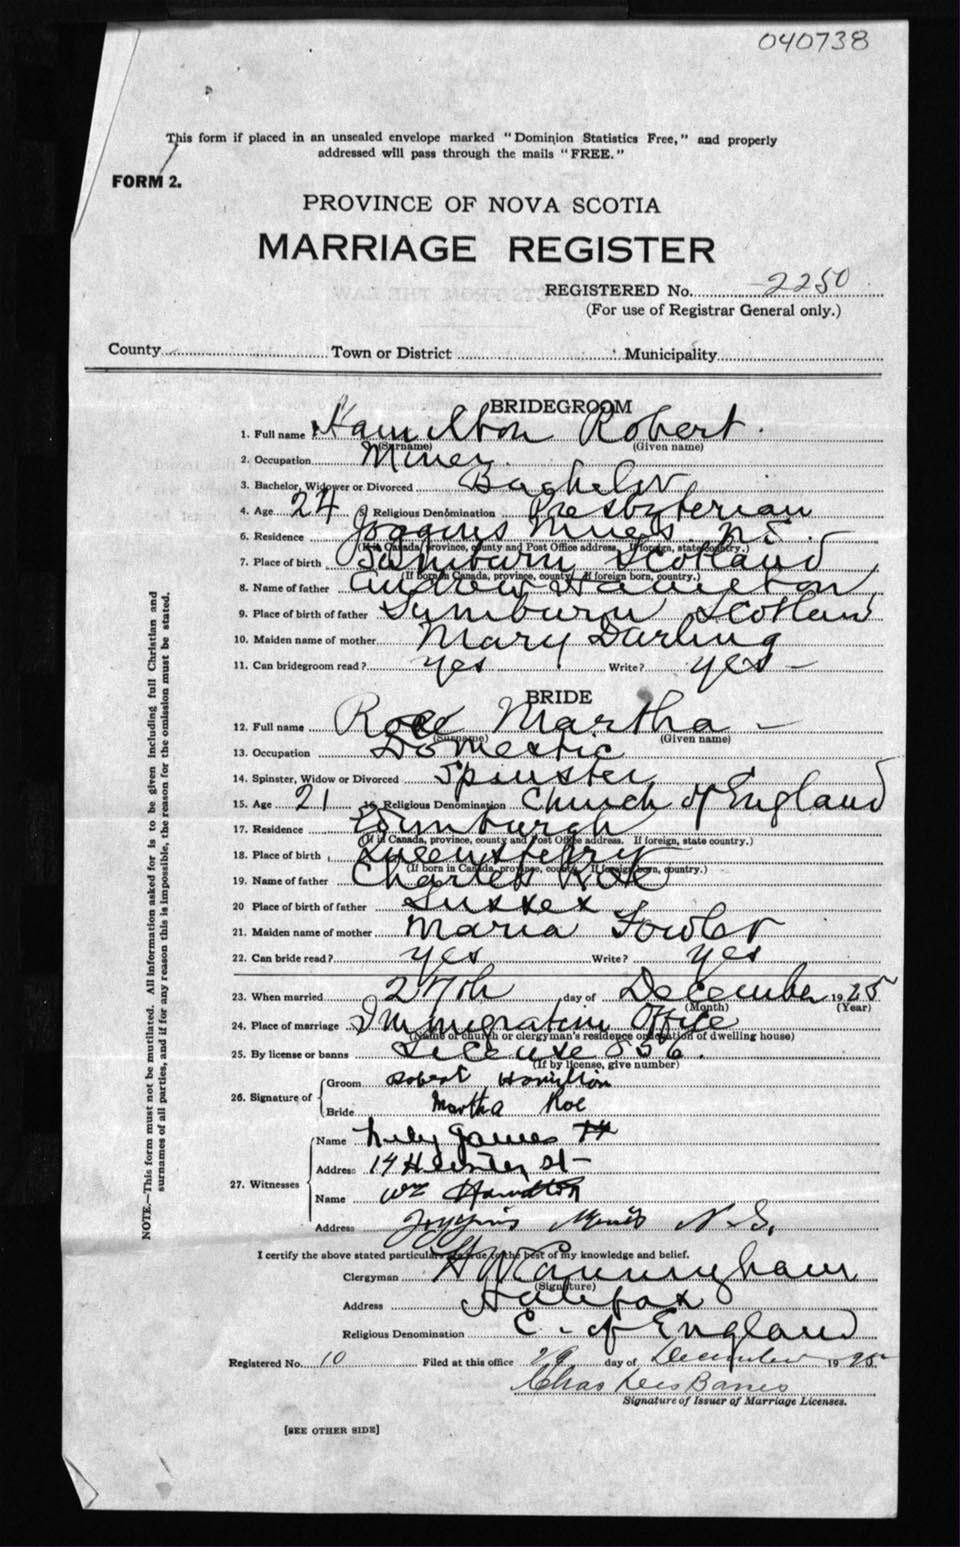 040738
This form if placed in an unsealed envelope marked "Dominion Statistics Free," and properly
addressed will pass through the mails "FREE."
FORM 2.
PROVINCE OF NOVA SCOTIA
MARRIAGE REGISTER
REGISTERED No. 2250
(For use of Registrar General only.)
County Town or District Municipality
BRIDEGROOM
1. Full name Hamilton Robert
(Surname) (Given name)
2. Occupation Miner
3. Bachelor, Widower or Divorced Bachelor
4. Age 24 5 Religious Denomination Presbyterian
6. Residence Joggins Mines N.S.
(If in Canada, province, county and Post Office address. If foreign, state country.)
7. Place of birth Scotland
(If born in Canada, province, county. If foreign born, country.)
8. Name of father Andrew Hamilton
9. Place of birth of father Scotland
10. Maiden name of mother Mary Darling
11. Can bridegroom read? yes Write? yes
BRIDE
12. Full name Roe Martha
(Surname) (Given name)
13. Occupation Domestic
14. Spinster, Widow or Divorced Spinster
15. Age 21 16. Religious Denomination Church of England
17. Residence Edinburgh
(If in Canada, province, county and Post Office address. If foreign, state country.)
18. Place of birth Queensferry
(If born in Canada, province, county. If foreign born, country.)
19. Name of father Charles Roe
20 Place of birth of father Sussex
21. Maiden name of mother Maria Fowler
22. Can bride read? yes Write? yes
23. When married 27th day of December 1925
(Month) (Year)
24. Place of marriage Immigration Office
(Name of church or clergyman's residence or location of dwelling house)
25. By license or banns License 856.
(If by license, give number)
26. Signature of Groom Robert Hamilton
Bride Martha Roe
27. Witnesses
Name James
Address 14 St
Name Wm Hamilton
Address Joggins Mines N.S.
I certify the above stated particulars are true to the best of my knowledge and belief.
Clergyman Cunningham
(Signature)
Address Halifax
Religious Denomination C. of England
Registered No. 10 Filed at this office 29 day of December 1925
Chas DesBarres
Signature of Issuer of Marriage Licenses.
[SEE OTHER SIDE]
NOTE.—This form must not be mutilated. All information asked for is to be given including full Christian and
surnames of all parties, and if for any reason this is impossible, the reason for the omission must be stated.